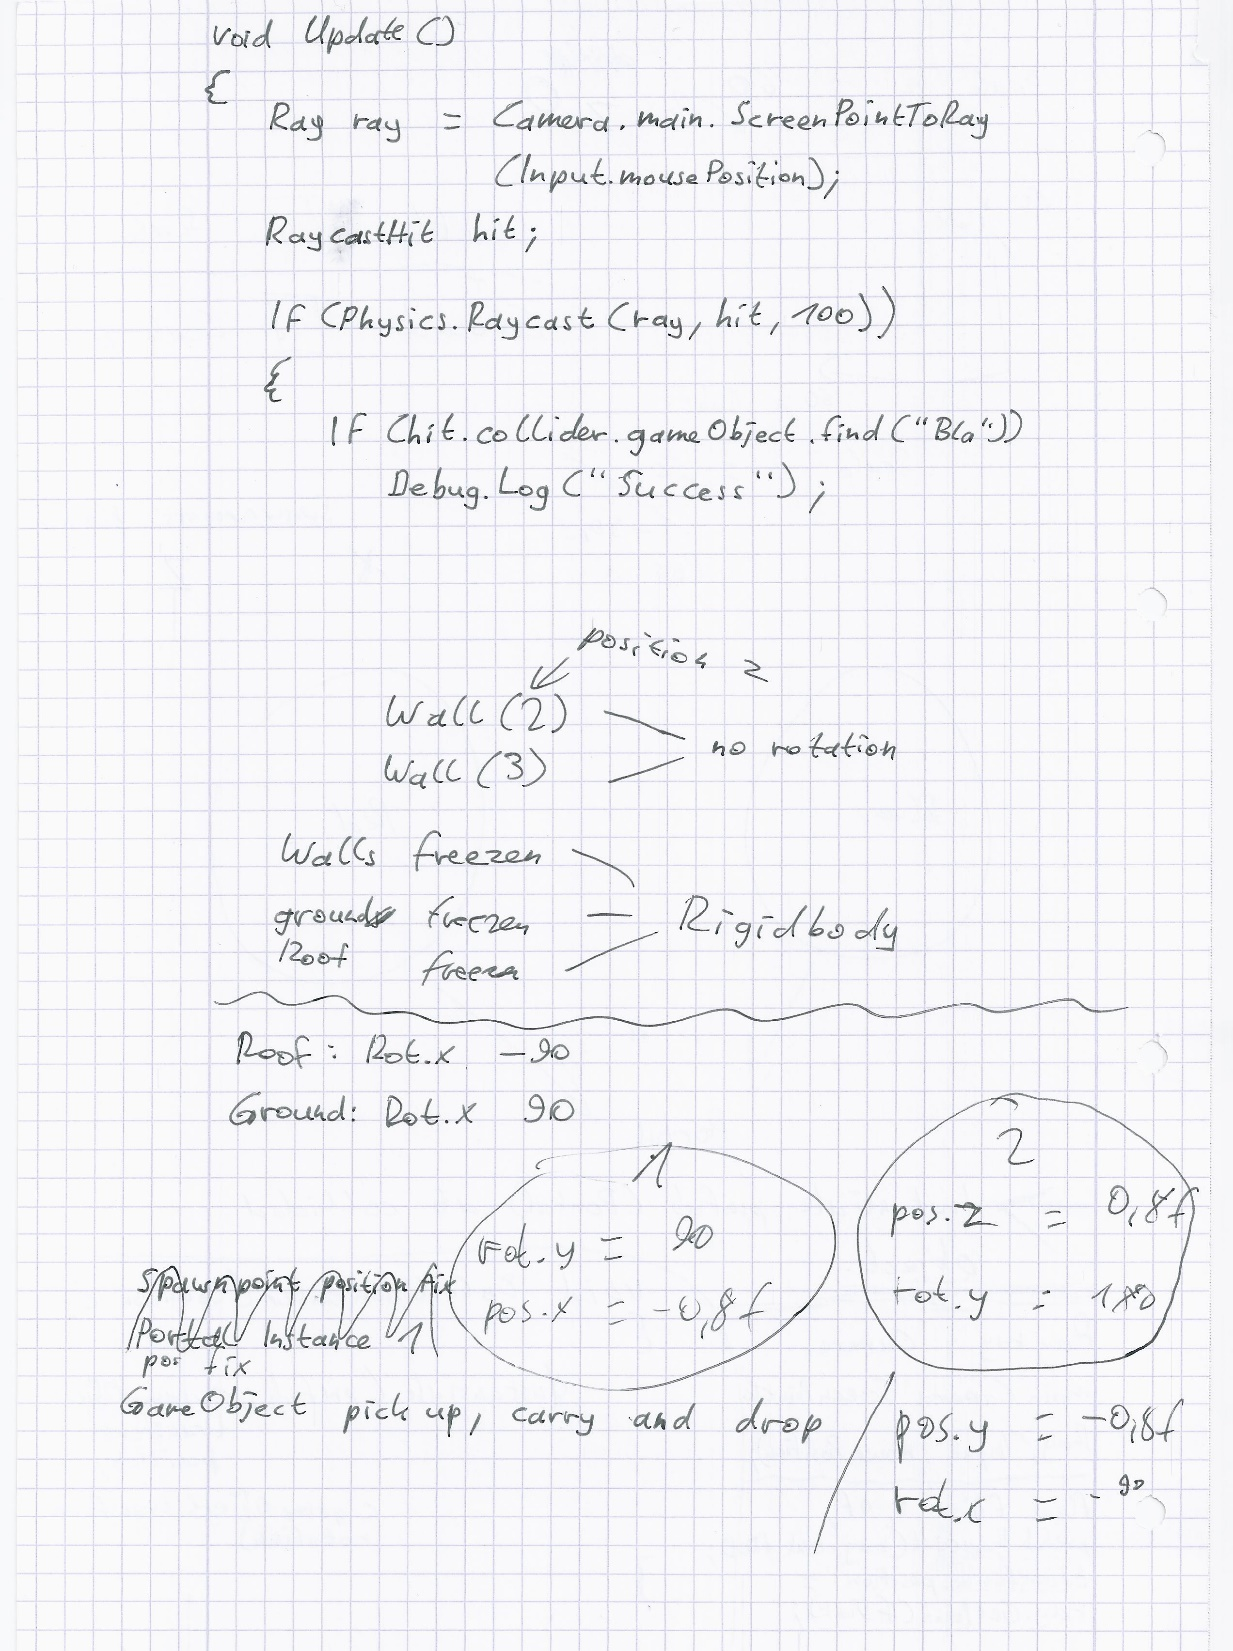 void Update()
{
Ray ray = Camera.main.ScreenPointToRay
(Input.mousePosition);
RaycastHit hit;
If (Physics.Raycast(ray, hit, 100))
{
If (hit.collider.gameObject.find("Bla"))
Debug.Log("Success");
position z
Wall (2)
Wall (3)
no rotation
Walls freezen
ground freezen
Roof
Rigidbody
Roof: Rot.x -90
Ground: Rot.x 90
1
rot.y = 90
pos.x = -0,8f
2
pos.z = 0,8f
rot.y = 180
Spawnpoint position fix
Portal Instance 1
pos fix
GameObject pick up, carry and drop
pos.y = -0,8f
rot.x = -90